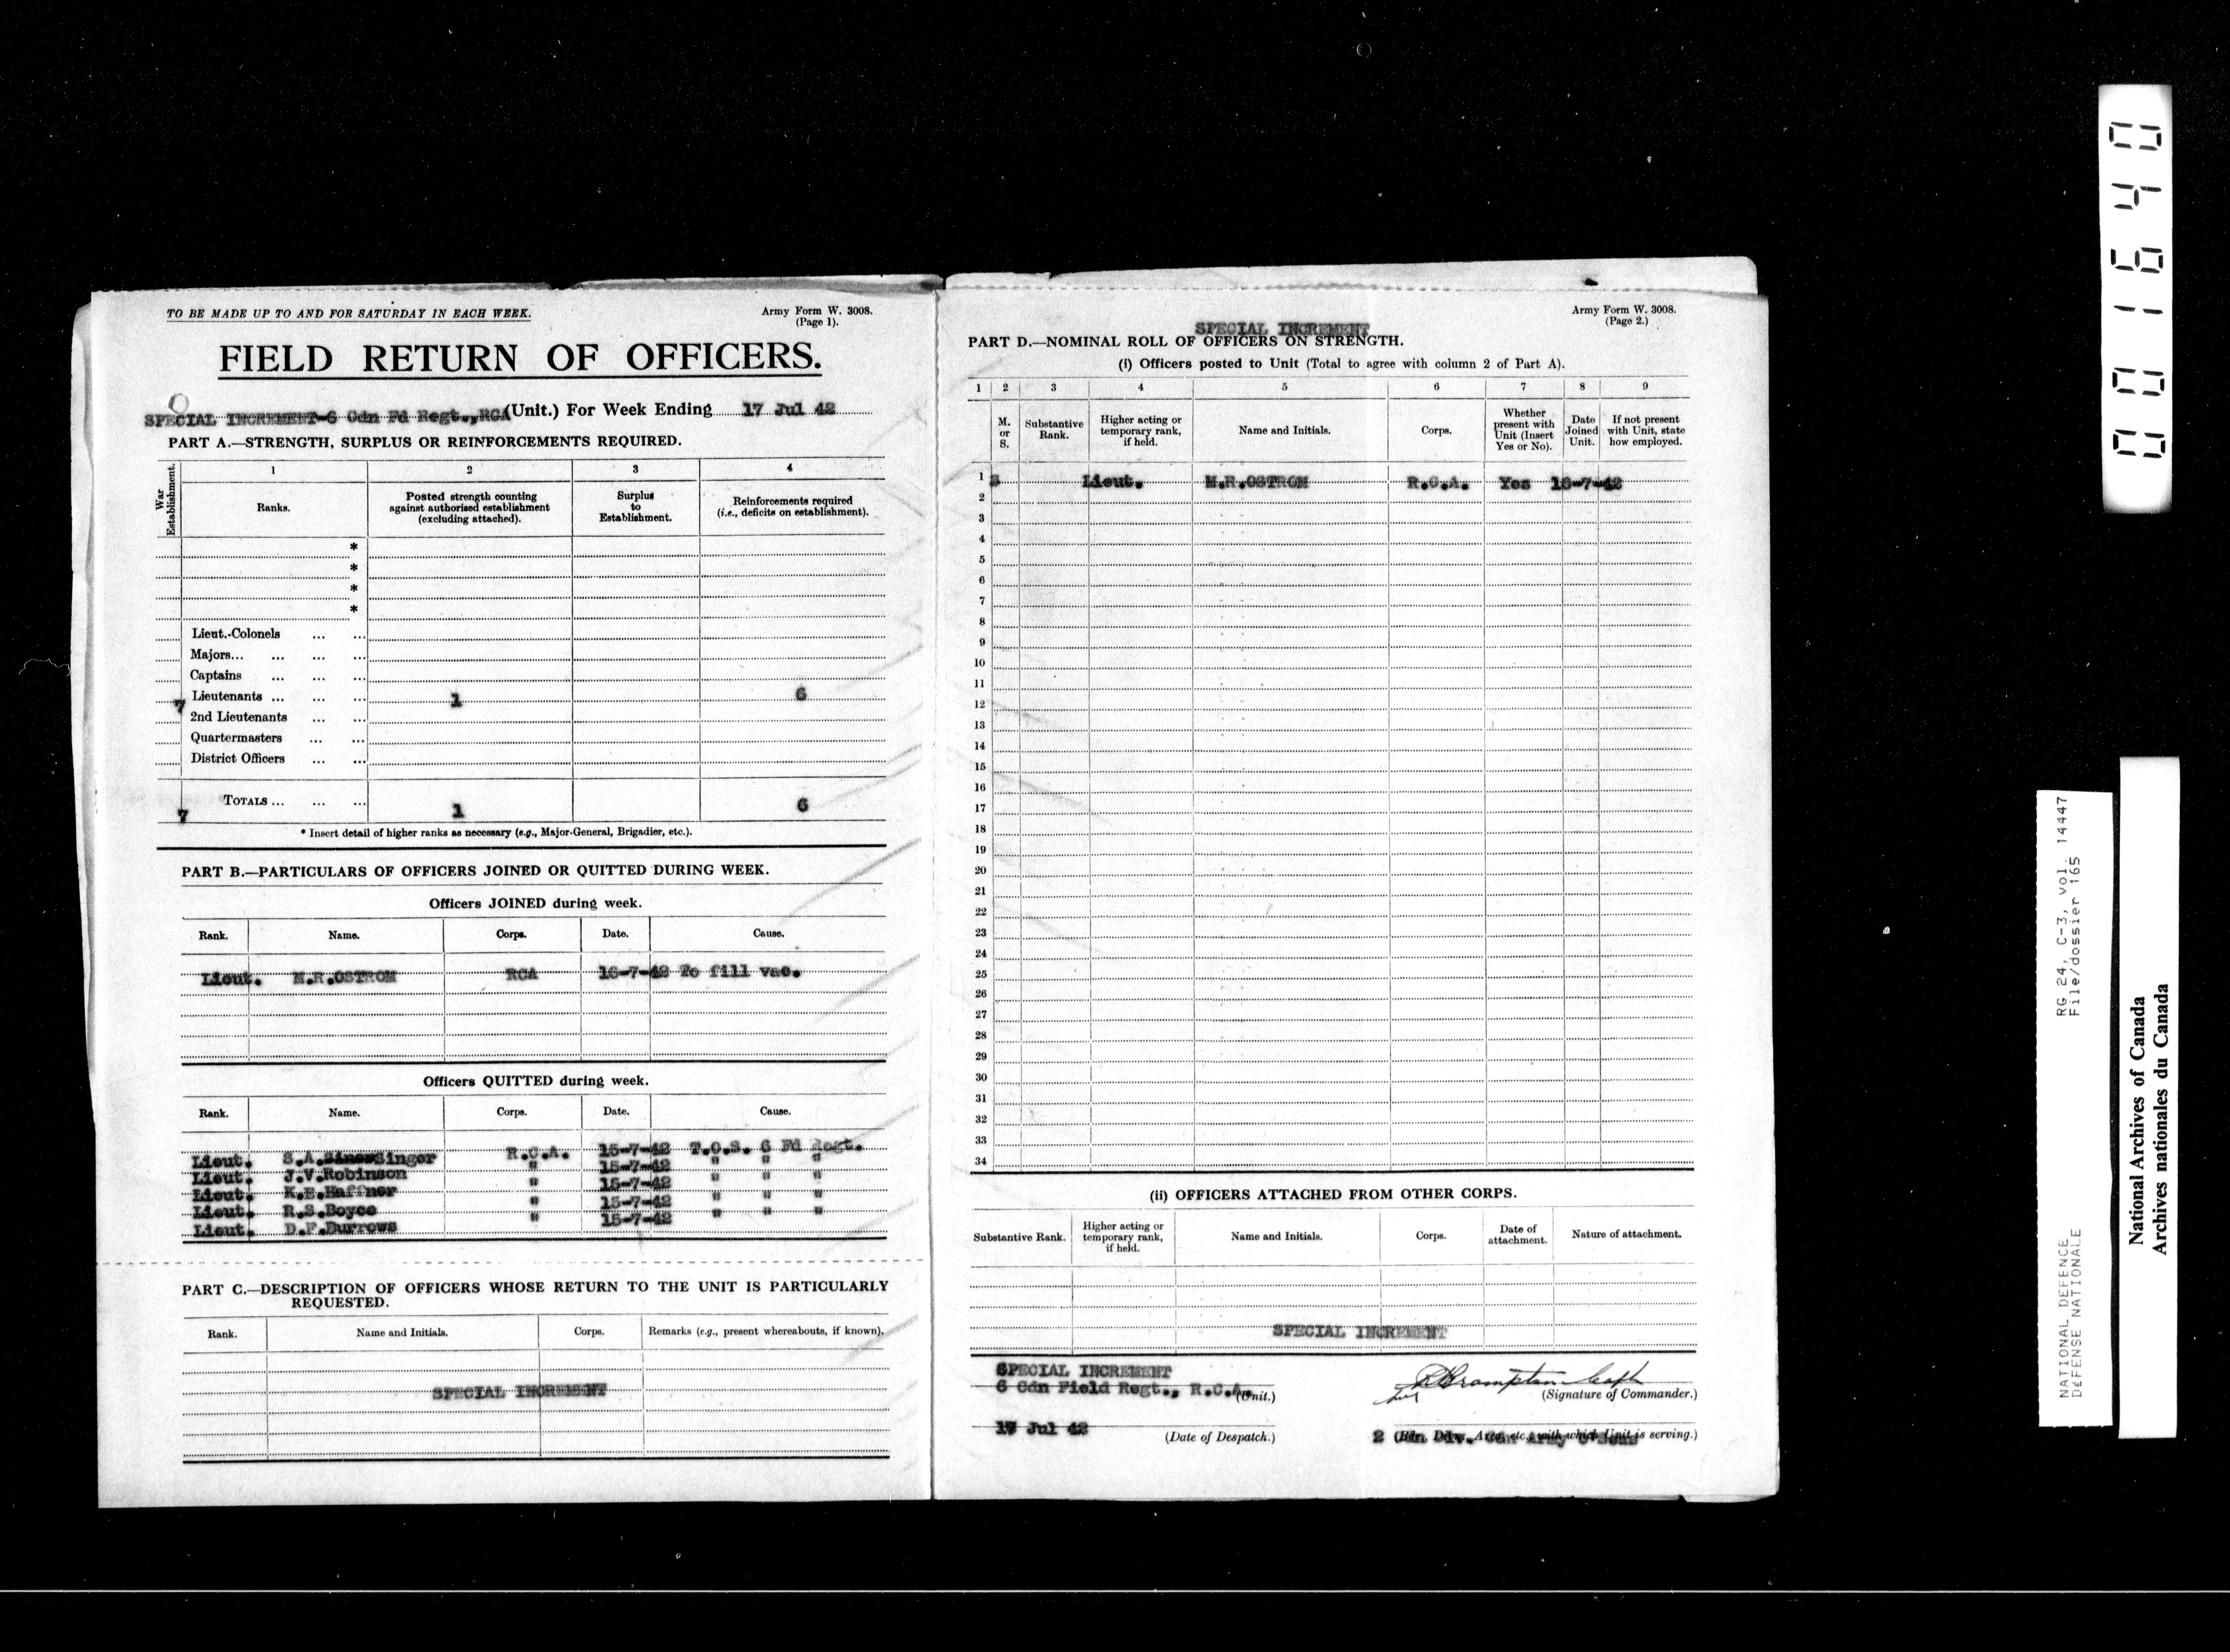 TO BE MADE UP TO AND FOR SATURDAY IN EACH WEEK.
Army Form W. 3008.
(Page 1).
FIELD RETURN OF OFFICERS.
SPECIAL INCREMENT-6 Cdn Fd Regt.,RCA (Unit.) For Week Ending 17 Jul 42
PART A.—STRENGTH, SURPLUS OR REINFORCEMENTS REQUIRED.
War Establishment.
1 2 3 4
Ranks.
Posted strength counting against authorised establishment (excluding attached).
Surplus to Establishment.
Reinforcements required (i.e., deficits on establishment).
*
*
*
*
Lieut.-Colonels ... ...
Majors... ... ... ...
Captains ... ... ...
7 Lieutenants ... ... ... 1 6
2nd Lieutenants ... ...
Quartermasters ... ...
District Officers ... ...
7 TOTALS ... ... ... 1 6
* Insert detail of higher ranks as necessary (e.g., Major-General, Brigadier, etc.).
PART B.—PARTICULARS OF OFFICERS JOINED OR QUITTED DURING WEEK.
Officers JOINED during week.
Rank. Name. Corps. Date. Cause.
Lieut. M.R.OSTROM RCA 16-7-42 To fill vac.
Officers QUITTED during week.
Rank. Name. Corps. Date. Cause.
Lieut. S.A. Singer R.C.A. 15-7-42 T.O.S. 6 Fd Regt.
Lieut. J.V.Robinson " 15-7-42 " " "
Lieut. K.E.Haffner " 15-7-42 " " "
Lieut. R.S.Boyce " 15-7-42 " " "
Lieut. D.F.Burrows " 15-7-42 " " "
PART C.—DESCRIPTION OF OFFICERS WHOSE RETURN TO THE UNIT IS PARTICULARLY
REQUESTED.
Rank. Name and Initials. Corps. Remarks (e.g., present whereabouts, if known).
SPECIAL INCREMENT
Army Form W. 3008.
(Page 2.)
SPECIAL INCREMENT
PART D.—NOMINAL ROLL OF OFFICERS ON STRENGTH.
(i) Officers posted to Unit (Total to agree with column 2 of Part A).
1 2 3 4 5 6 7 8 9
M. or S.
Substantive Rank.
Higher acting or temporary rank, if held.
Name and Initials.
Corps.
Whether present with Unit (Insert Yes or No).
Date Joined Unit.
If not present with Unit, state how employed.
1 S Lieut. M.R.OSTROM R.C.A. Yes 16-7-42
2
3
4
5
6
7
8
9
10
11
12
13
14
15
16
17
18
19
20
21
22
23
24
25
26
27
28
29
30
31
32
33
34
(ii) OFFICERS ATTACHED FROM OTHER CORPS.
Substantive Rank.
Higher acting or temporary rank, if held.
Name and Initials.
Corps.
Date of attachment.
Nature of attachment.
SPECIAL INCREMENT
SPECIAL INCREMENT
6 Cdn Field Regt., R.C.A. (Unit.)
Brampton Capt
for
(Signature of Commander.)
17 Jul 42
(Date of Despatch.)
2 Cdn Div. Cdn Army
(Bde., Div., Area, etc., with which Unit is serving.)
001640
RG 24, C-3, vol. 14447
File/dossier 165
NATIONAL DEFENCE
DÉFENSE NATIONALE
National Archives of Canada
Archives nationales du Canada